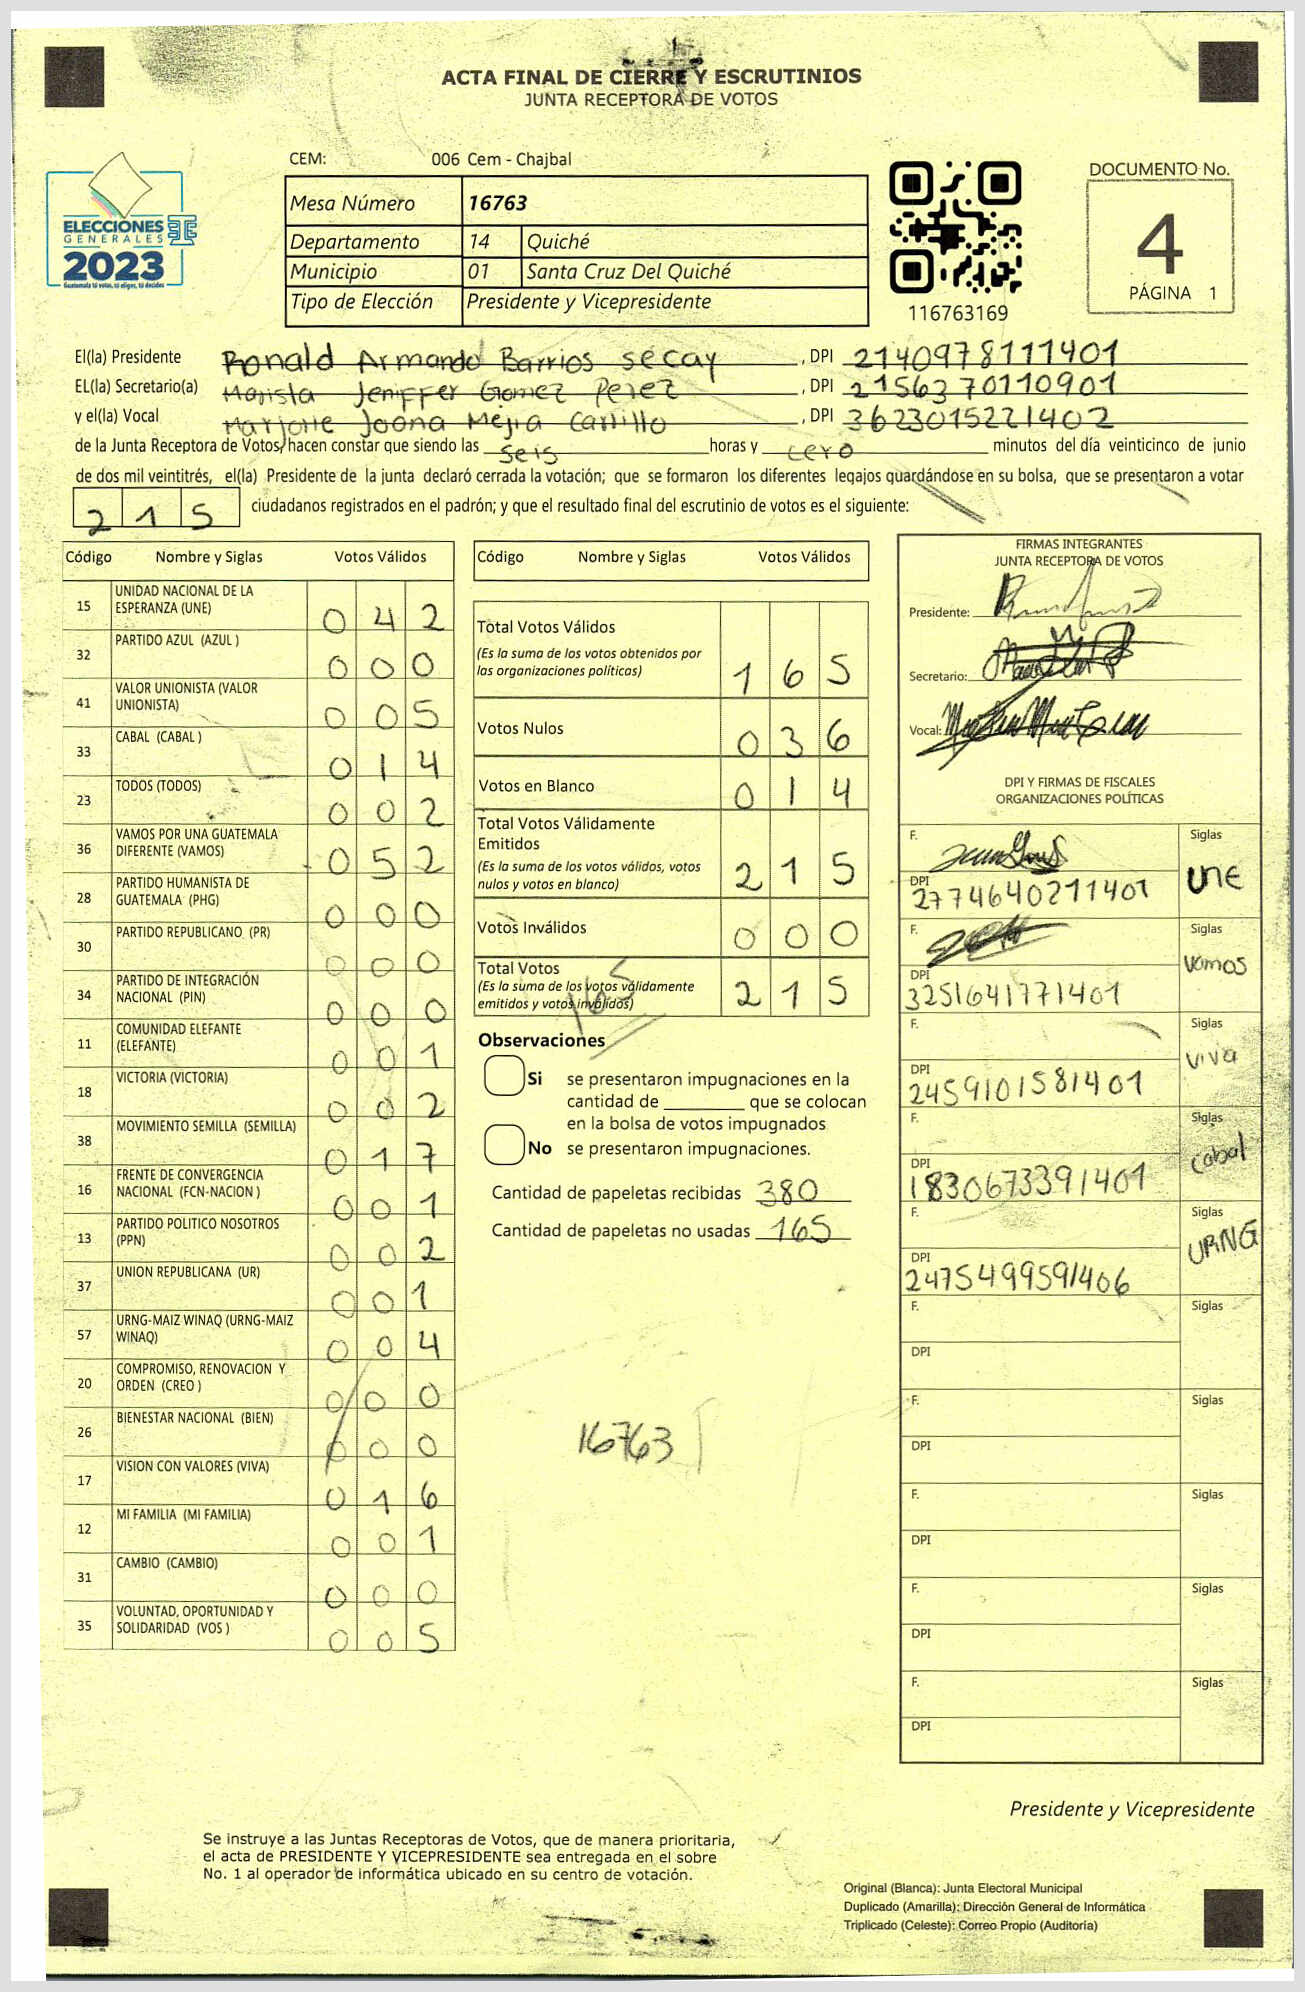 ACTA FINAL DE CIERRE Y ESCRUTINIOS
JUNTA RECEPTORA DE VOTOS
CEM: 006 Cem - Chajbal
ELECCIONES
GENERALES
2023
Guatemala tú votas, tú eliges, tú decides
Mesa Número 16763
Departamento 14 Quiché
Municipio 01 Santa Cruz Del Quiché
Tipo de Elección Presidente y Vicepresidente
116763169
DOCUMENTO No.
4
PÁGINA 1
El(la) Presidente Ronald Armando Barrios secay , DPI 2140978111401
EL(la) Secretario(a) Marista Jeniffer Gomez Perez , DPI 2156370110901
y el(la) Vocal Marjorie Joana Mejia Carrillo , DPI 3623015221402
de la Junta Receptora de Votos, hacen constar que siendo las seis horas y cero minutos del día veinticinco de junio
de dos mil veintitrés, el(la) Presidente de la junta declaró cerrada la votación; que se formaron los diferentes legajos guardándose en su bolsa, que se presentaron a votar
215 ciudadanos registrados en el padrón; y que el resultado final del escrutinio de votos es el siguiente:
Código Nombre y Siglas Votos Válidos
15 UNIDAD NACIONAL DE LA
ESPERANZA (UNE) 0 4 2
32 PARTIDO AZUL (AZUL ) 0 0 0
41 VALOR UNIONISTA (VALOR
UNIONISTA) 0 0 5
33 CABAL (CABAL ) 0 1 4
23 TODOS (TODOS) 0 0 2
36 VAMOS POR UNA GUATEMALA
DIFERENTE (VAMOS) 0 5 2
28 PARTIDO HUMANISTA DE
GUATEMALA (PHG) 0 0 0
30 PARTIDO REPUBLICANO (PR) 0 0 0
34 PARTIDO DE INTEGRACIÓN
NACIONAL (PIN) 0 0 0
11 COMUNIDAD ELEFANTE
(ELEFANTE) 0 0 1
18 VICTORIA (VICTORIA) 0 0 2
38 MOVIMIENTO SEMILLA (SEMILLA) 0 1 7
16 FRENTE DE CONVERGENCIA
NACIONAL (FCN-NACION ) 0 0 1
13 PARTIDO POLITICO NOSOTROS
(PPN) 0 0 2
37 UNION REPUBLICANA (UR) 0 0 1
57 URNG-MAIZ WINAQ (URNG-MAIZ
WINAQ) 0 0 4
20 COMPROMISO, RENOVACION Y
ORDEN (CREO ) 0 0 0
26 BIENESTAR NACIONAL (BIEN) 0 0 0
17 VISION CON VALORES (VIVA) 0 1 6
12 MI FAMILIA (MI FAMILIA) 0 0 1
31 CAMBIO (CAMBIO) 0 0 0
35 VOLUNTAD, OPORTUNIDAD Y
SOLIDARIDAD (VOS ) 0 0 5
Código Nombre y Siglas Votos Válidos
Total Votos Válidos
(Es la suma de los votos obtenidos por
las organizaciones políticas) 1 6 5
Votos Nulos 0 3 6
Votos en Blanco 0 1 4
Total Votos Válidamente
Emitidos
(Es la suma de los votos válidos, votos
nulos y votos en blanco) 2 1 5
Votos Inválidos 0 0 0
Total Votos
(Es la suma de los votos válidamente
emitidos y votos inválidos) 2 1 5
165
Observaciones
Si se presentaron impugnaciones en la
cantidad de ________ que se colocan
en la bolsa de votos impugnados
No se presentaron impugnaciones.
Cantidad de papeletas recibidas 380
Cantidad de papeletas no usadas 165
16763
FIRMAS INTEGRANTES
JUNTA RECEPTORA DE VOTOS
Presidente:
Secretario:
Vocal:
DPI Y FIRMAS DE FISCALES
ORGANIZACIONES POLÍTICAS
F. Siglas
DPI 2774640211401 UNE
F. Siglas
DPI 3251641771401 Vamos
F. Siglas
DPI 2459101581401 viva
F. Siglas
DPI 1830673391401 cabal
F. Siglas
DPI 2475499591406 URNG
F. Siglas
DPI
F. Siglas
DPI
F. Siglas
DPI
F. Siglas
DPI
F. Siglas
DPI
Presidente y Vicepresidente
Se instruye a las Juntas Receptoras de Votos, que de manera prioritaria,
el acta de PRESIDENTE Y VICEPRESIDENTE sea entregada en el sobre
No. 1 al operador de informática ubicado en su centro de votación.
Original (Blanca): Junta Electoral Municipal
Duplicado (Amarilla): Dirección General de Informática
Triplicado (Celeste): Correo Propio (Auditoría)